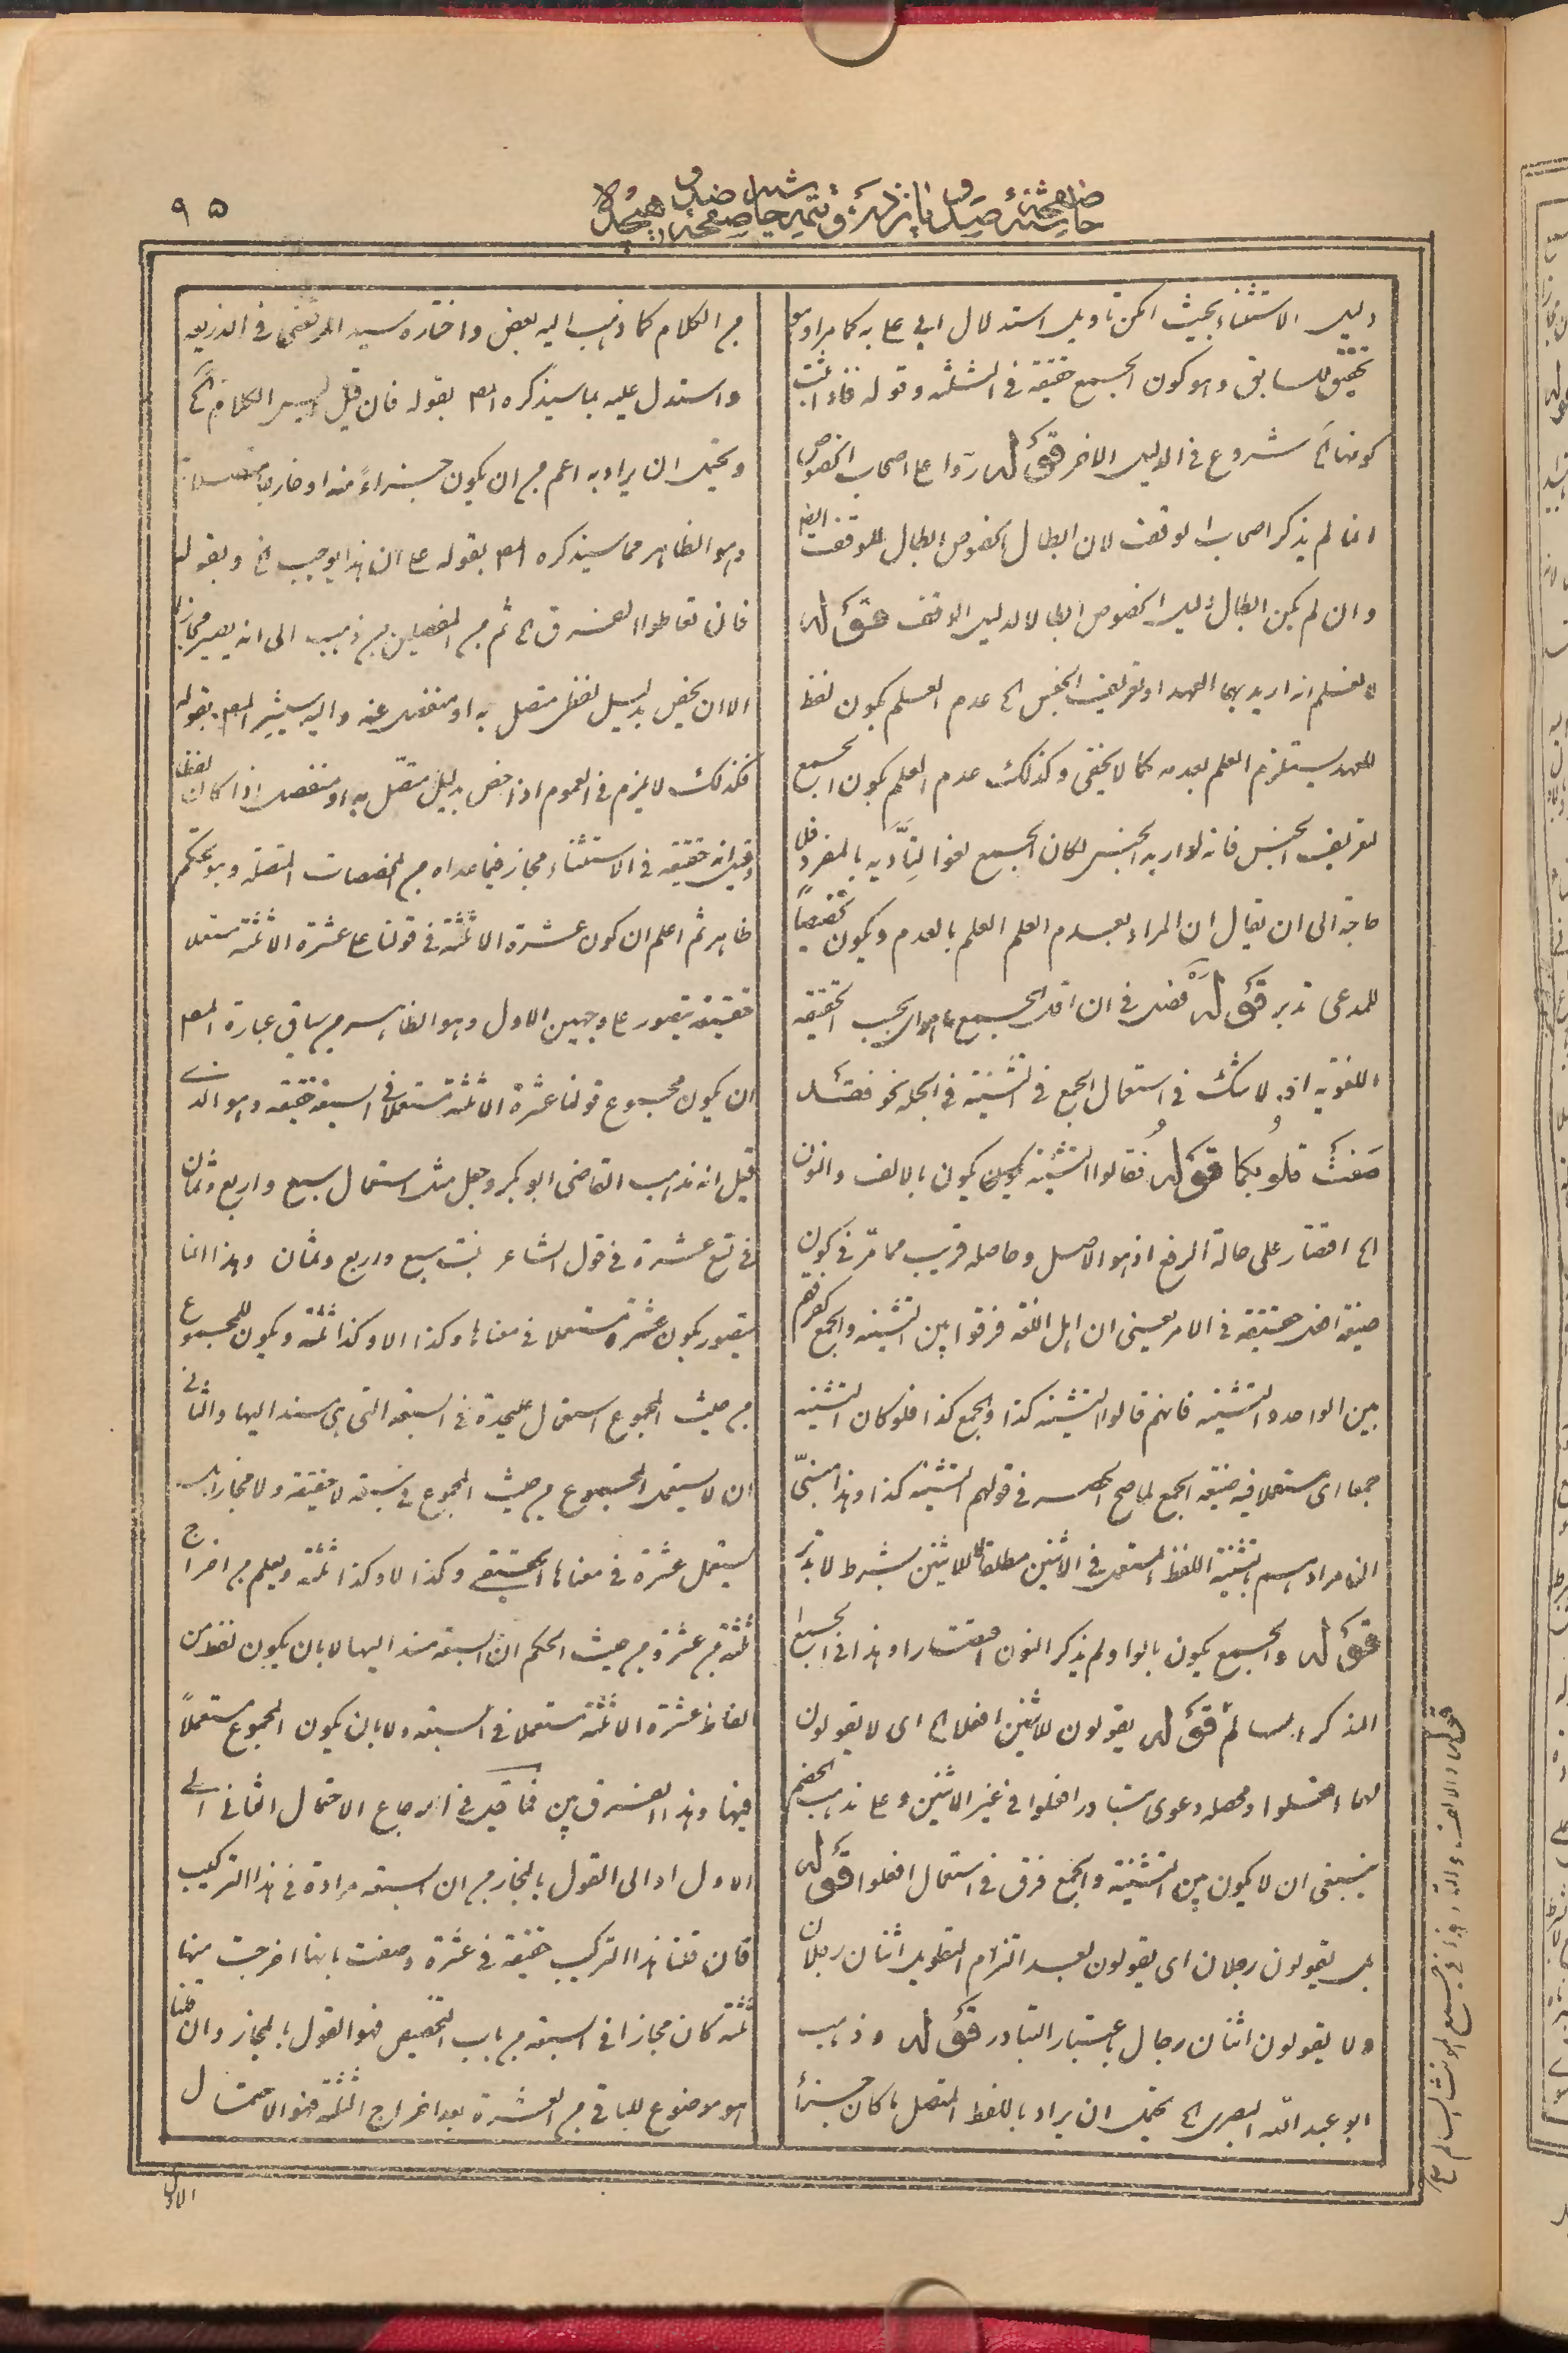 ٩٥
دليل الاستثناء بحيث امكن تأويل استدلال ابي علي به كما مر او هو
تحقيق للسابق وهو كون الجمع حقيقة في الثلثة وقوله فاذا ثبت
كونها الخ شروع في الدليل الاخر قوله ردوا على اصحاب الخصوص
انما لم يذكر اصحاب الوقف لان ابطال الخصوص ابطال للوقف
وان لم يكن ابطال دليل الخصوص ابطالا لدليل الوقف قوله
لا نعلم انه اريد بهما العهد او تعريف الجنس الخ عدم العلم بكون لفظ
للعهد يستلزم العلم بعدمه كما لا يخفى وكذلك عدم العلم بكون الجمع
لتعريف الجنس فانه لو اريد الجنس لكان الجمع لغوا لتأديه بالمفرد فلا
حاجة الى ان يقال ان المراد بعدم العلم العلم بالعدم ويكون تخصيصا
للمدعى تدبر قوله فصل في ان اقل الجمع ما هو اى بحسب الحقيقة
اللغوية اذ لا شك في استعمال الجمع في التثنية في الجملة نحو فقد
صَغَتْ قلوبكما قوله فقالوا التثنية يكون بالالف والنون
الخ اقتصار على حالة الرفع اذ هو الاصل وحاصله قريب مما مر في كون
صيغة افعل حقيقة في الامر يعنى ان اهل اللغة فرقوا بين التثنية والجمع كفرقهم
بين الواحد والتثنية فانهم قالوا التثنية كذا والجمع كذا فلو كان التثنية
جمعا اى مستعملا فيه صيغة الجمع لما صح الحصر في قولهم التثنية كذا وهذا مبنىّ
انما مرادهم بتثنية اللفظ المستعمل في الاثنين مطلقا لا للاثنين بشرط لا تدبر
قوله والجمع يكون بالواو لم يذكر النون اقتصارا وهذا في الجمع
المذكر السالم قوله يقولون للاثنين افعلا الخ اى لا يقولون
لهما افعلوا ومحصله دعوى تبادر افعلوا في غير الاثنين وعلى مذهب الخصم
ينبغى ان لا يكون بين التثنية والجمع فرق في استعمال افعلوا قوله
بل يقولون رجلان اى يقولون بعد التزام التطويل اثنان رجلان
ولا يقولون اثنان رجال باعتبار التبادر قوله وذهب
ابو عبد الله البصرى الخ يحتمل ان يراد باللفظ المتصل ما كان جزءا
من الكلام كما ذهب اليه بعض واختاره سيد المرتضى في الذريعة
واستدل عليه بما سيذكره المص بقوله فان قيل اليس الكلام الخ
ويحتمل ان يراد به اعم من ان يكون جزءاً منه او خارجا متصلا
وهو الظاهر مما سيذكره المص بقوله على ان هذا يوجب الخ وبقوله
فان تعاطوا الفرق الخ ثم من المفصلين من ذهب الى انه يصير مجازا
الا ان يخص بدليل لفظى متصل به او منفصل عنه واليه يشير المص بقوله
فكذلك لا يلزم في العموم اذا خص بدليل متصل به او منفصل اذا كان لفظا
وقيل انه حقيقة في الاستثناء مجاز فيما عداه من المخصصات المتصلة وهو تحكم
ظاهر ثم اعلم ان كون عشرة الا ثلثة في قولنا على عشرة الا ثلثة مستعملا
حقيقة يتصور على وجهين الاول وهو الظاهر من سياق عبارة المص
ان يكون مجموع قولنا عشرة الا ثلثة مستعملا في السبعة حقيقة وهو الذى
قيل انه مذهب القاضى ابو بكر وجعل مثل استعمال سبع واربع وثمان
في تسع عشرة في قول الشاعر بنت سبع واربع وثمان وهذا انما
يتصور بكون عشرة مستعملا في معناها وكذا الا وكذا ثلثة ويكون للمجموع
من حيث المجموع استعمال عليحدة في السبعة التى هى مسند اليها والثانى
ان لا يستعمل المجموع من حيث المجموع في سبعة لا حقيقة ولا مجازا بل
يستعمل عشرة في معناها الحقيقى وكذا الا وكذا ثلثة ويعلم من اخراج
ثلثة من عشرة ومن حيث الحكم ان السبعة مسند اليها لا بان يكون لفظ من
الفاظ عشرة الا ثلثة مستعملا في السبعة ولا بان يكون المجموع مستعملاً
فيها وهذا الفرق بين فما قيل في ارجاع الاحتمال الثانى الى
الاول او الى القول بالمجاز من ان السبعة مرادة في هذا التركيب
فان قلنا هذا التركيب حقيقة في عشرة وصفت بانها اخرجت منها
ثلثة كان مجازا في السبعة من باب التخصيص فهو القول بالمجاز وان قلنا
هو موضوع للباقى من العشرة بعد اخراج الثلثة فهو الاحتمال
الاول